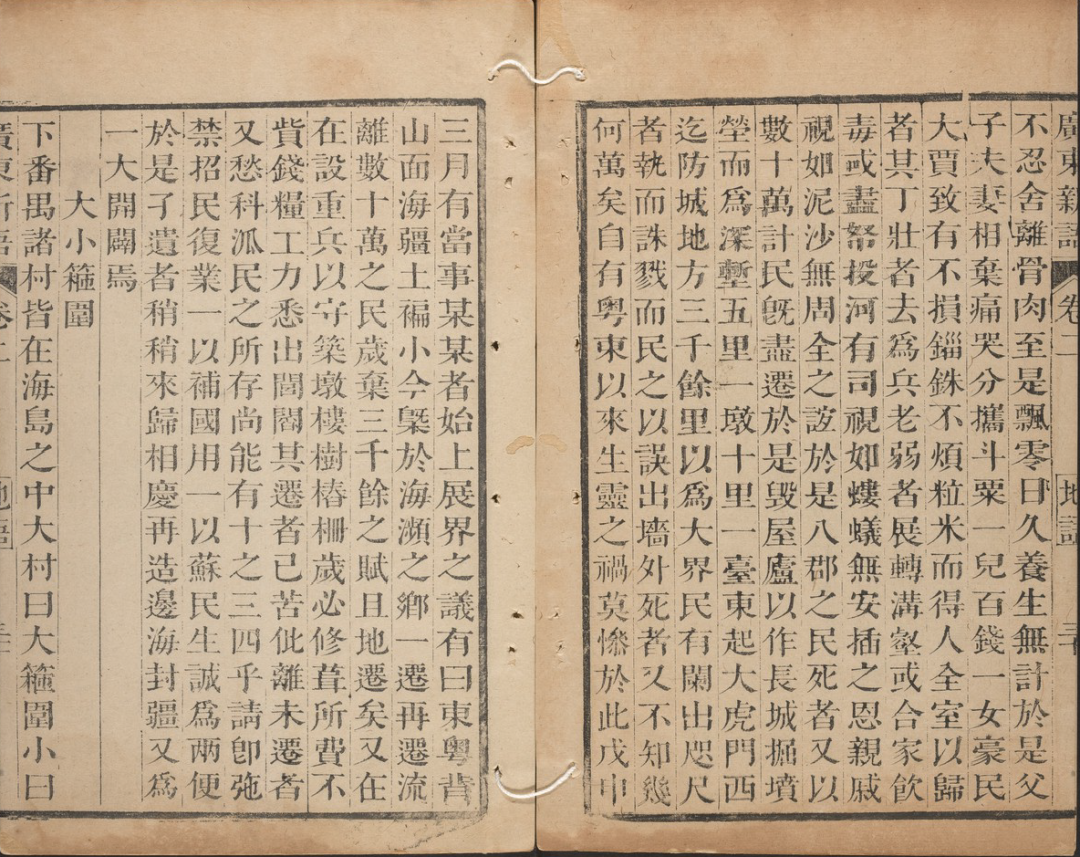 廣東新語 卷二 地語
不忍舍離骨肉至是飄零日久養生無計於是父
子夫妻相棄痛哭分攜斗粟一兒百錢一女豪民
大賈致有不損錙銖不煩粒米而得人全室以歸
者其丁壯者去爲兵老弱者展轉溝壑或合家飲
毒或盡帑投河有司視如螻蟻無安插之恩親戚
視如泥沙無周全之誼於是八郡之民死者又以
數十萬計民旣盡遷於是毀屋廬以作長城掘墳
塋而爲深塹五里一墩十里一臺東起大虎門西
迄防城地方三千餘里以爲大界民有闌出咫尺
者執而誅戮而民之以誤出墻外死者又不知幾
何萬矣自有粵東以來生靈之禍莫慘於此戊申
三月有當事某某者始上展界之議有曰東粵背
山面海疆土褊小今槩於海瀕之鄉一遷再遷流
離數十萬之民歲棄三千餘之賦且地遷矣又在
在設重兵以守築墩樓樹樁柵歲必修葺所費不
貲錢糧工力悉出閭閻其遷者已苦仳離未遷者
又愁科派民之所存尚能有十之三四乎請卽弛
禁招民復業一以補國用一以蘇民生誠爲兩便
於是孑遺者稍稍來歸相慶再造邊海封疆又爲
一大開闢焉
大小箍圍
下番禺諸村皆在海島之中大村曰大箍圍小曰
廣東新語 卷二 地語